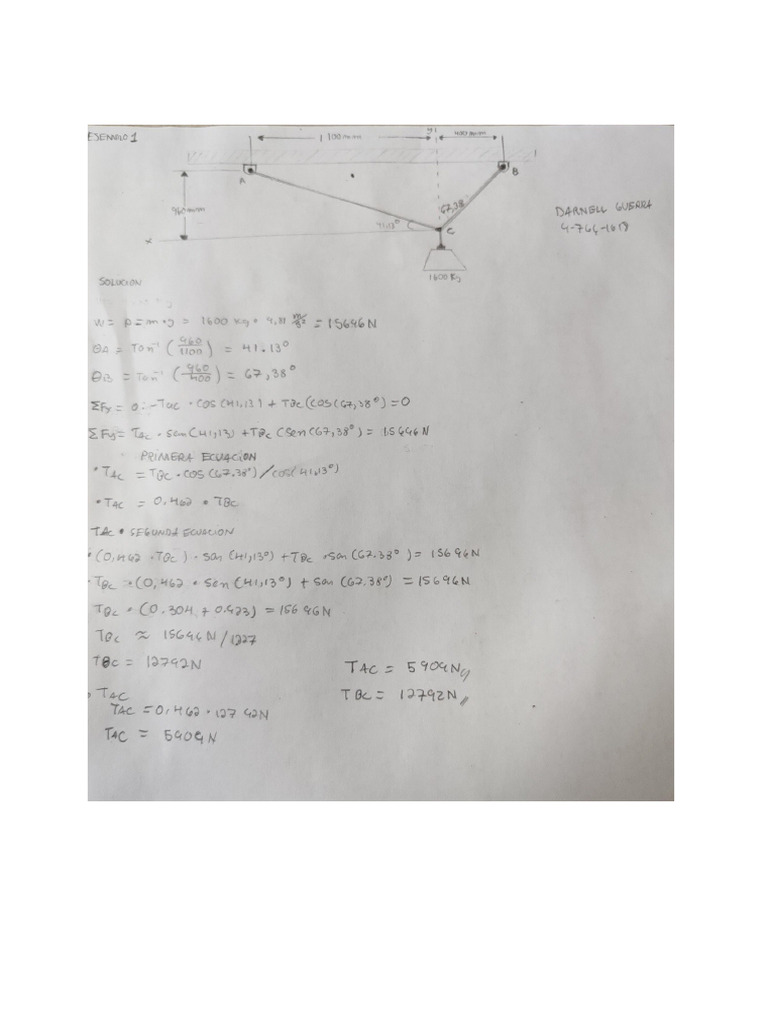 EJEMPLO 1
1100 mm
y
400 mm
A
B
960 mm
67,38
41.13° C
C
X
1600 Kg
DARNELL GUERRA
4-764-1613
SOLUCION
W = P = m • g = 1600 kg • 9,81 m/s² = 15696N
θA = Tan⁻¹ (960/1100) = 41.13°
θB = Tan⁻¹ (960/400) = 67,38°
ΣFx = 0: -TAC • COS (41,13) + TBC (COS (67,38°) = 0
ΣFy = TAC • sen (41,13) + TBC (sen (67,38°) = 15696 N
PRIMERA ECUACION
• TAC = TBC • COS (67.38°) / cos (41.13°)
• TAC = 0.462 • TBC
TAC • SEGUNDA ECUACION
• (0,462 • TBC) • sen (41,13°) + TBC • sen (67.38°) = 15696N
• TBC • (0,462 • sen (41,13°) + sen (67.38°) = 15696N
TBC • (0.304 + 0.923) = 15696N
TBC ≈ 15696N / 1227
TBC = 12792N
TAC = 5909N
• TAC
TBC = 12792N
TAC = 0,462 • 12792N
TAC = 5909N